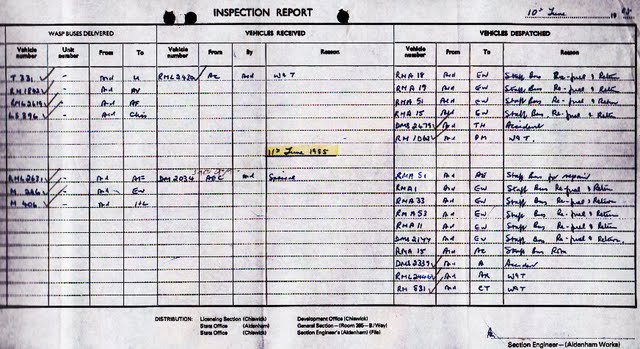 INSPECTION REPORT
10th June 19 85
WASP BUSES DELIVERED VEHICLES RECEIVED VEHICLES DESPATCHED
Vehicle number Unit number From To Vehicle number From By Reason Vehicle number From To Reason
T 331 - And U And W&T RMA 18 And EW Staff Bus Re-fuel & Return
- And AV RMA 19 And EW Staff Bus Re-fuel & Return
- And AF RMA 51 And EW Staff Bus Re-fuel & Return
LS 396 - And RMA 15 And EW Staff Bus Re-fuel & Return
And TH Accident
RM 1062 And PM W&T.
11th June 1985
- And DM 2034 And Special RMA 51 And Staff Bus for repair
M 226 - And EW RMA 1 And EW Staff Bus Re-fuel & Return
M 406 - And RMA 33 And EW Staff Bus Re-fuel & Return
RMA 53 And EW Staff Bus Re-fuel & Return
RMA 11 And EW Staff Bus Re-fuel & Return
DMS 2144 And EW Staff Bus Re-fuel & Return
RMA 15 And Staff Bus
And A Accident
And AX W&T
RM 831 And CT W&T
DISTRIBUTION: Licensing Section (Chiswick) Development Office (Chiswick)
Stats Office (Aldenham) General Section - (Room 295 - B/Way)
Stats Office (Chiswick) Section Engineer's (Aldenham) (File)
Section Engineer - (Aldenham Works)